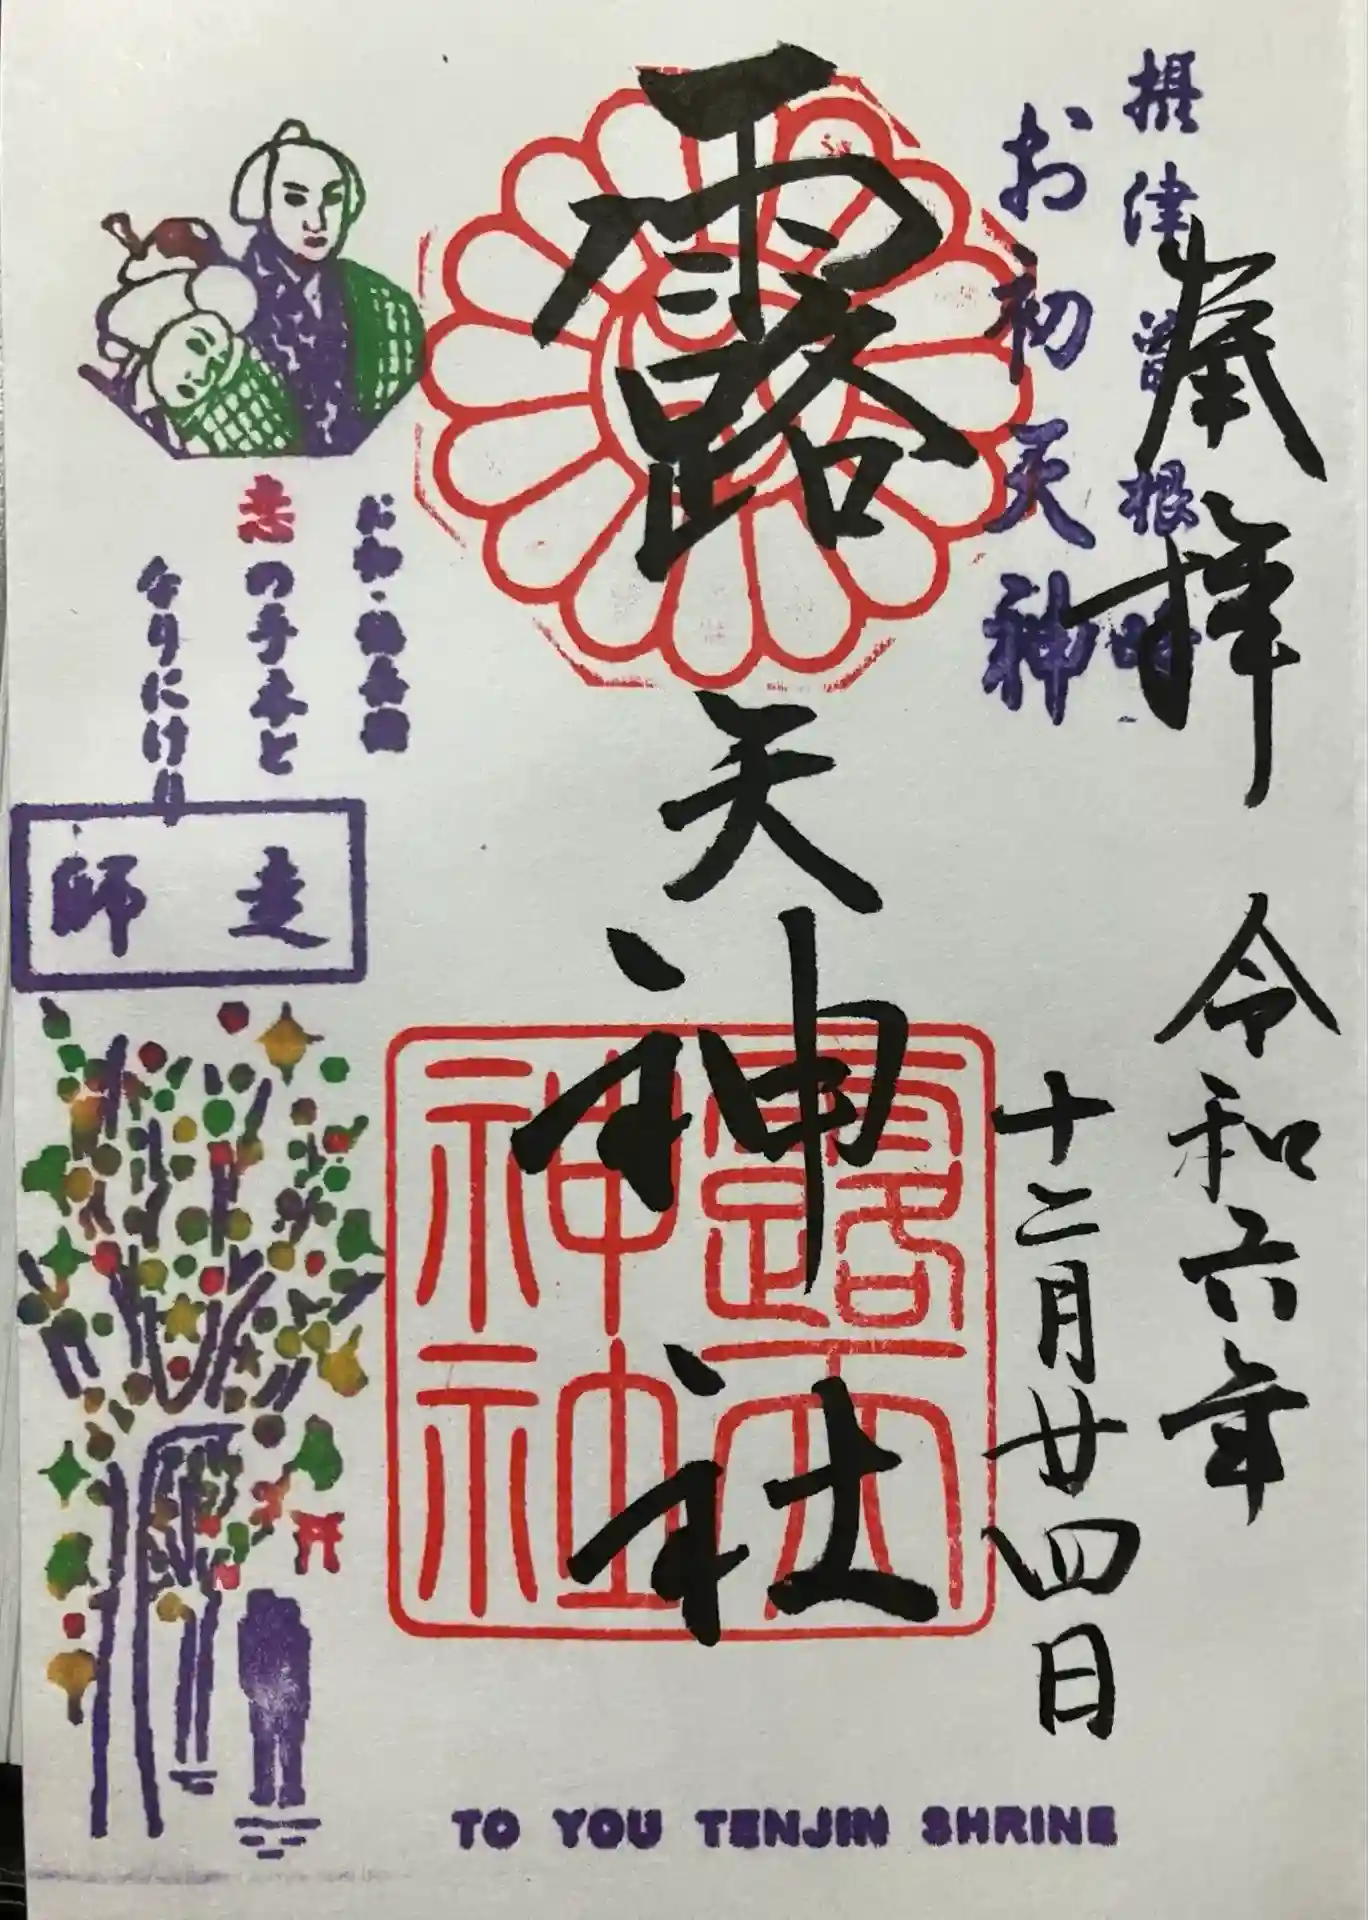 奉拝
令和六年
十二月廿四日
摂津曽根崎
お初天神
露天神社
露天神社
お初・徳兵衛
恋の手本と
なりにけり
師走
TO YOU TENJIN SHRINE